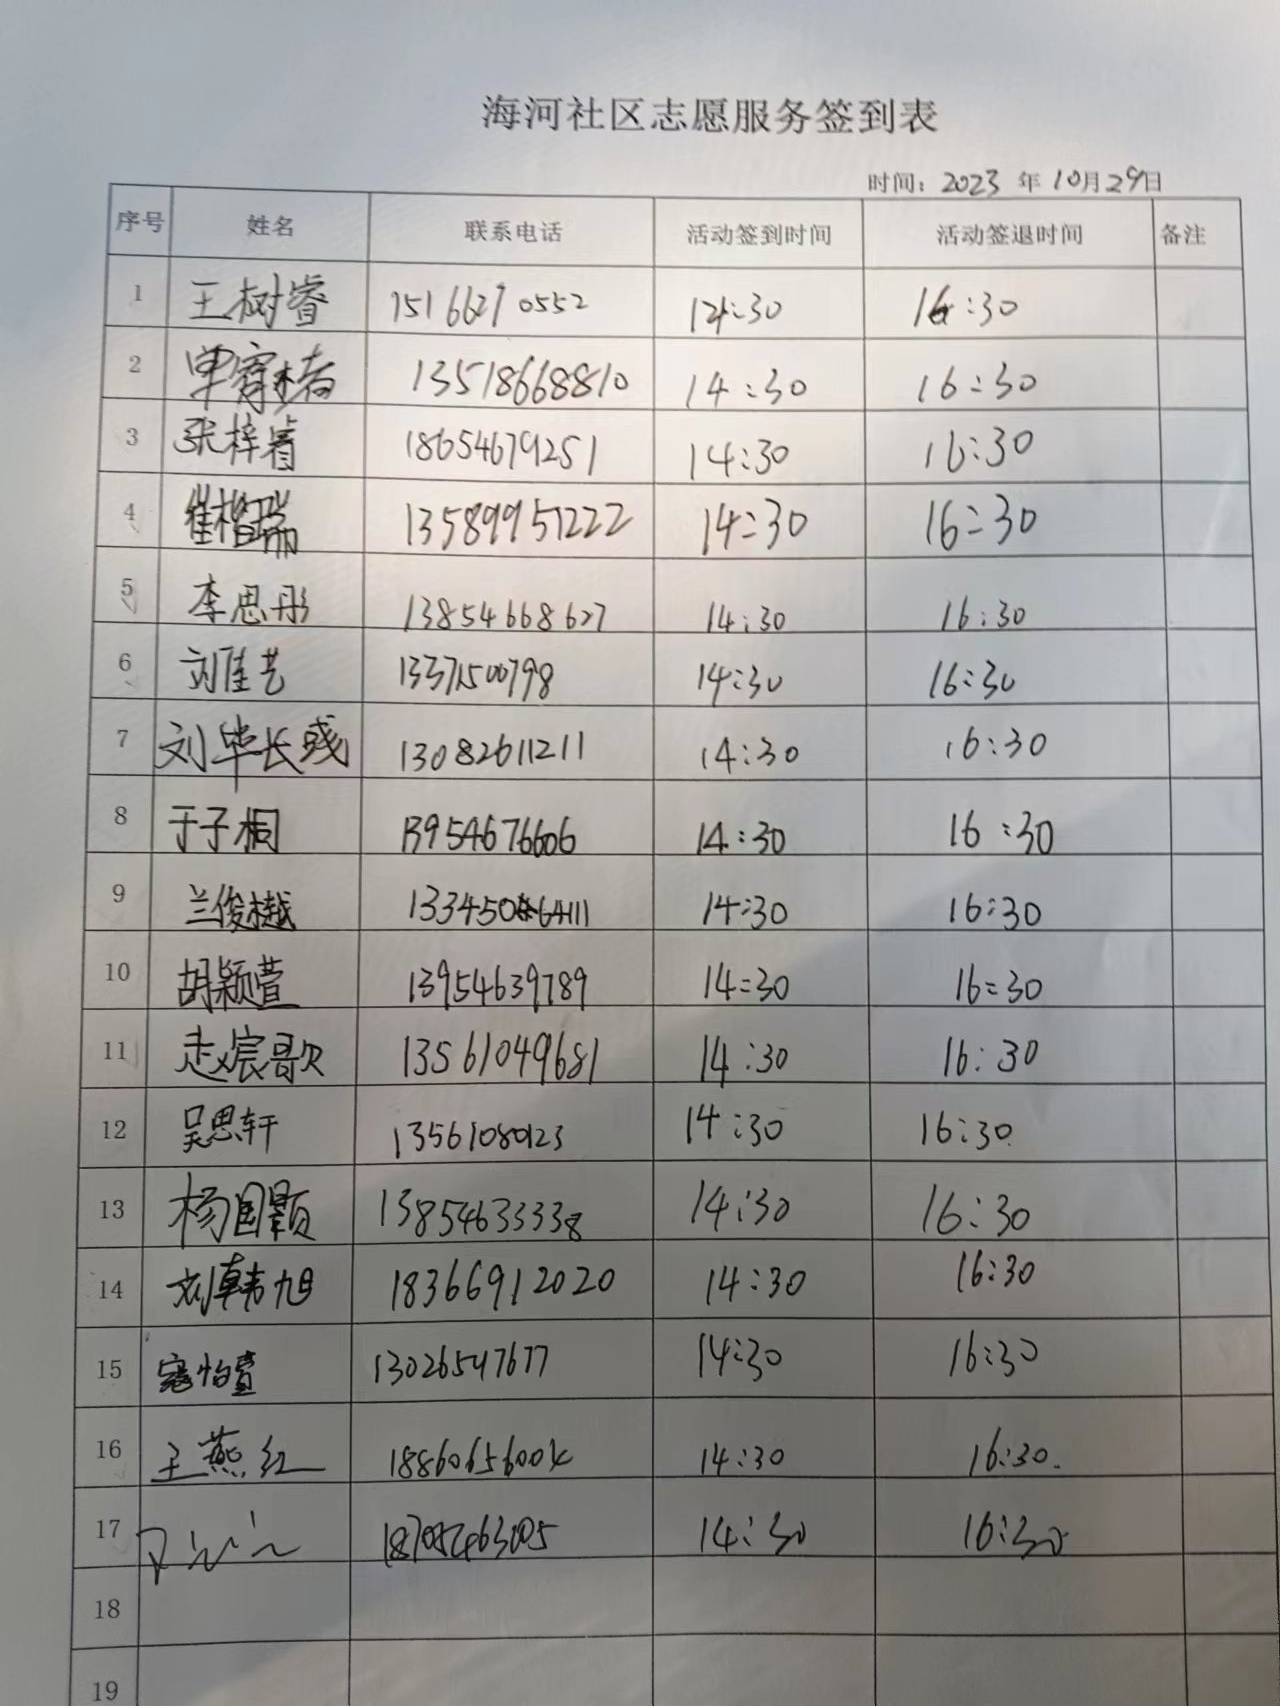 海河社区志愿服务签到表
时间：2023 年 10月29日
序号 姓名 联系电话 活动签到时间 活动签退时间 备注
1 王树睿 15166270552 14:30 16:30
2 13518668810 14:30 16:30
3 张梓睿 18654679251 14:30 16:30
4 崔楷瑞 13589951222 14:30 16:30
5 李思彤 13854668627 14:30 16:30
6 刘佳艺 13371500798 14:30 16:30
7 刘毕长彧 13082611211 14:30 16:30
8 于子桐 13954676606 14:30 16:30
9 兰俊樾 14:30 16:30
10 胡颖萱 13954639789 14:30 16:30
11 赵宸歌 13561049681 14:30 16:30
12 吴思轩 13561080123 14:30 16:30
13 杨国颢 13854633338 14:30 16:30
14 刘韩旭 18366912020 14:30 16:30
15 寇怡萱 13026547677 14:30 16:30
16 王燕红 14:30 16:30.
17 14:30 16:30
18
19